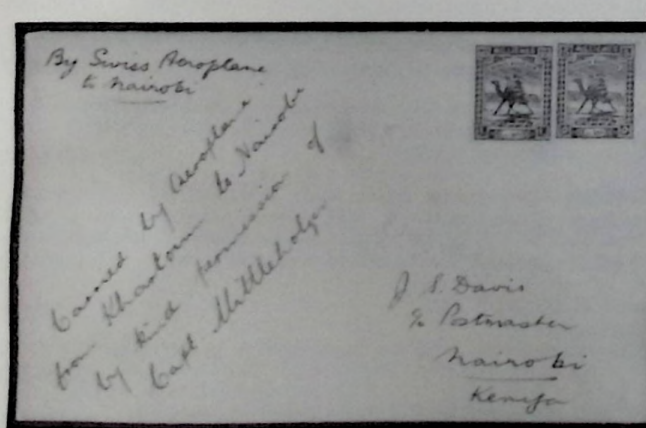 By Swiss Aeroplane
to Nairobi
Carried by Aeroplane
from Khartoum to Nairobi
by kind permission of
Capt Mittleholzer
P. S. Davis
c/o Postmaster
Nairobi
Kenya